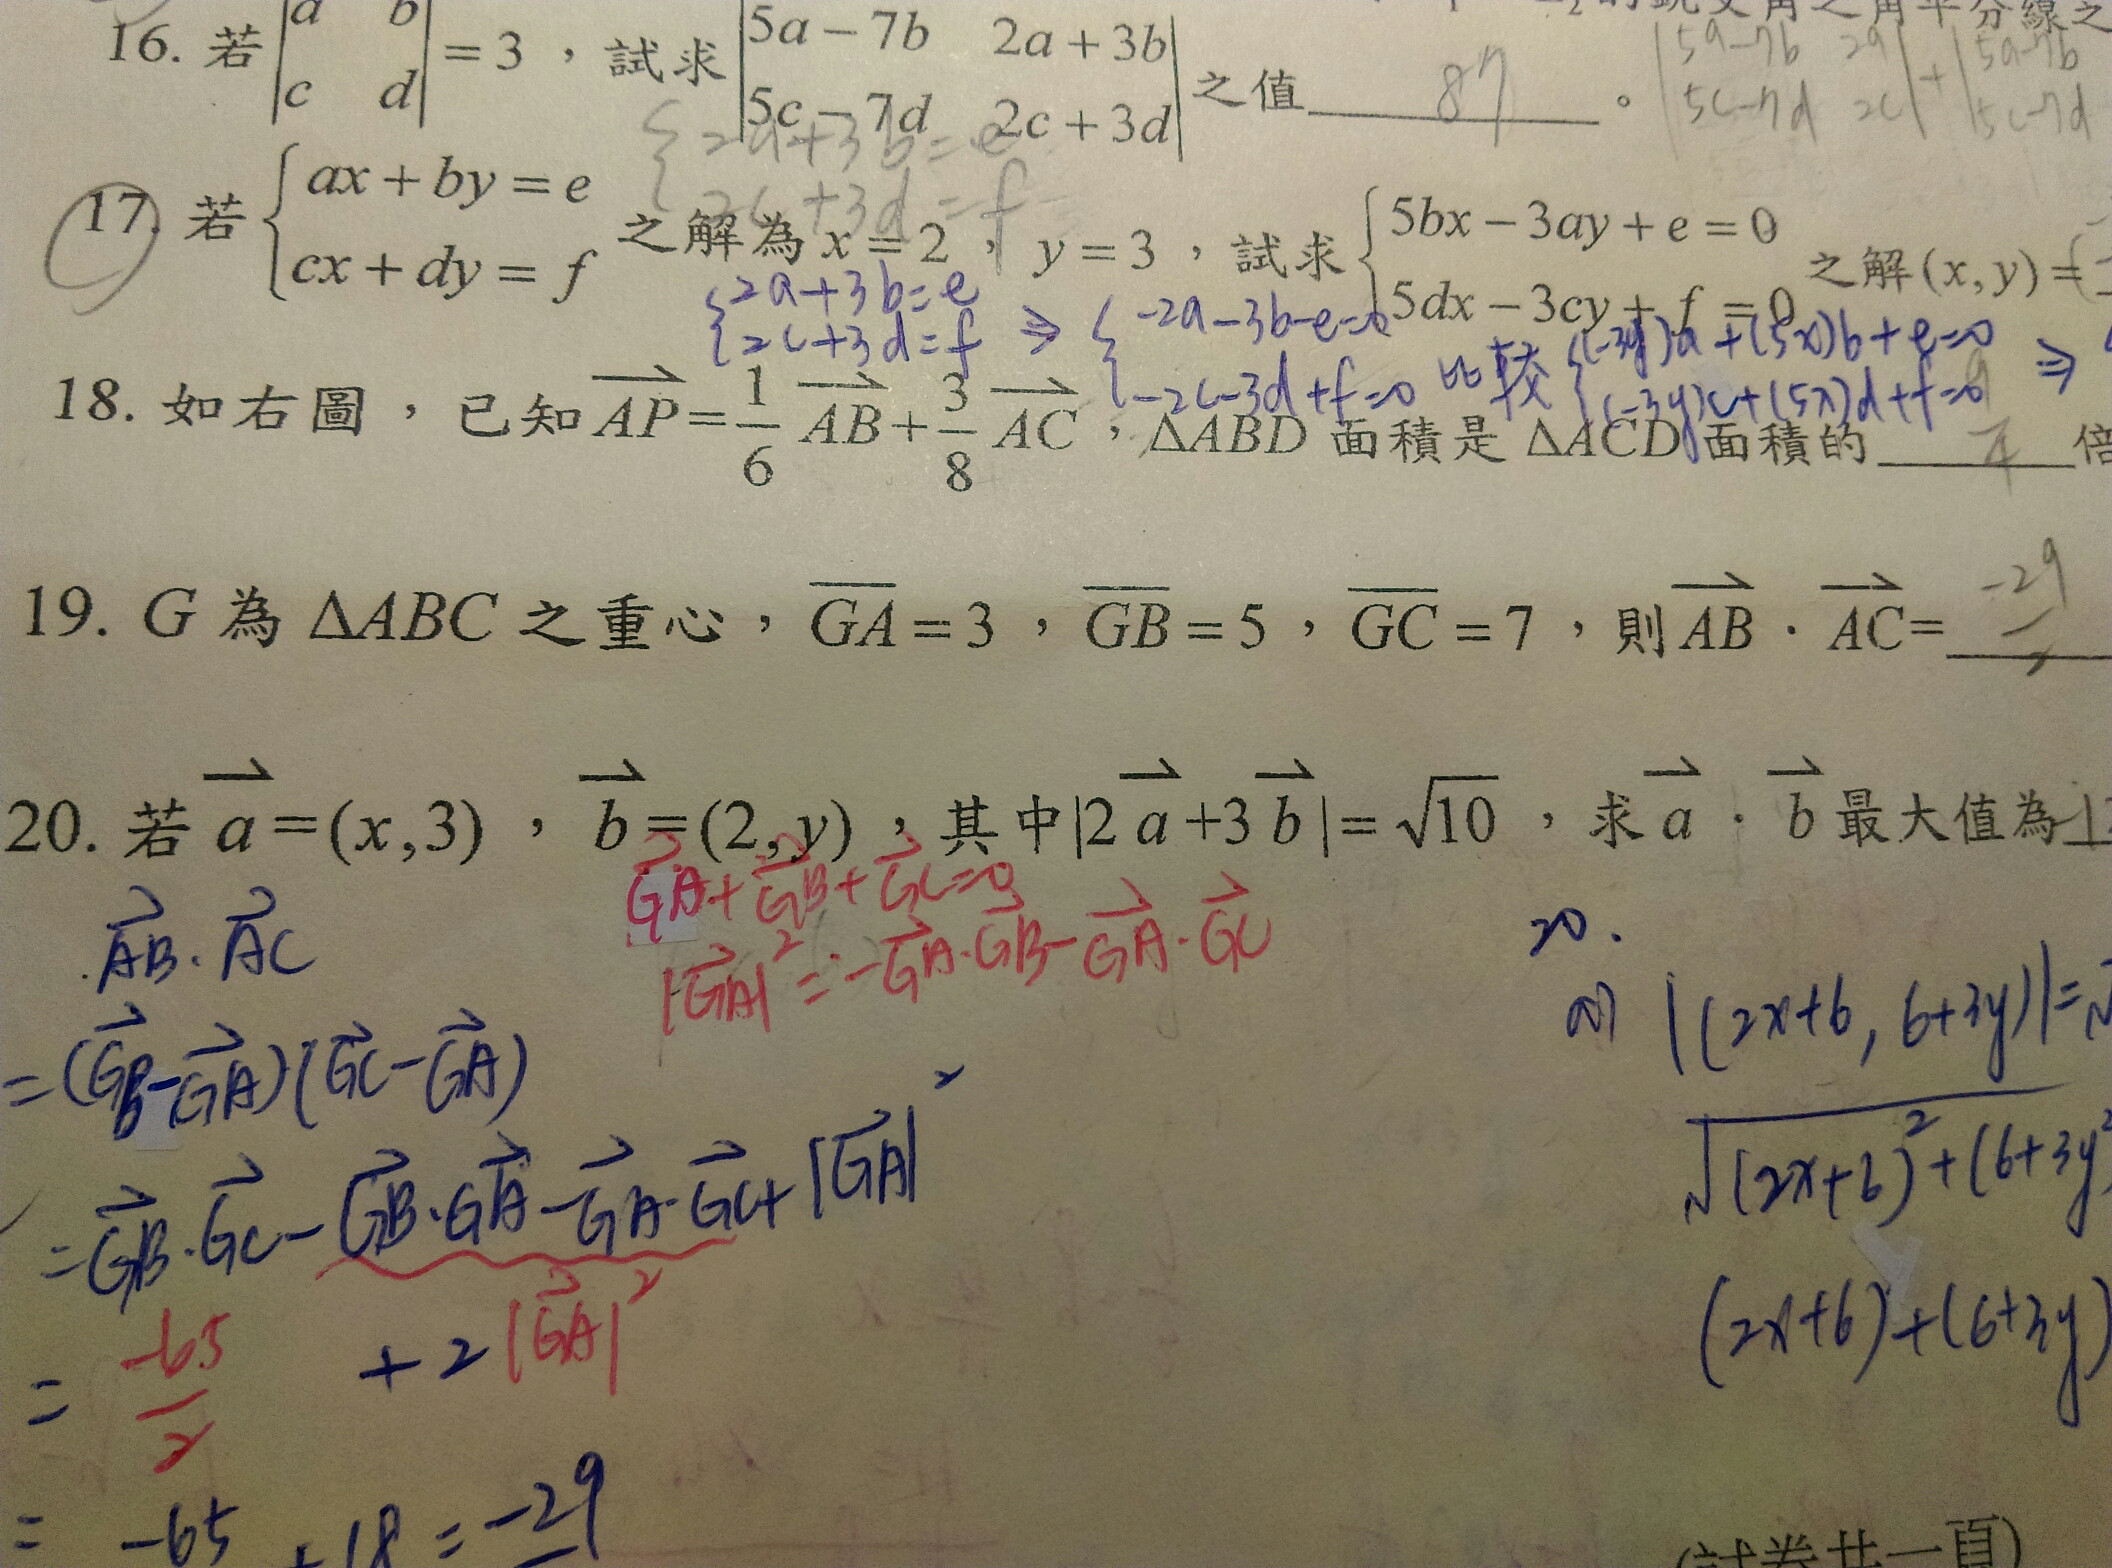 的銳交角之角平分線之
16. 若 |a b; c d| = 3 ，試求 |5a−7b 2a+3b; 5c−7d 2c+3d| 之值 87 。
|5a-7b 2a; 5c-7d 2c| + |5a-7b; 5c-7d
{2a+3b=e
2c+3d=f
17. 若 {ax+by=e; cx+dy=f 之解為 x=2 ， y=3 ，試求 {5bx−3ay+e=0; 5dx−3cy+f=0 之解(x,y)=(
{2a+3b=e; 2c+3d=f ⇒ {-2a-3b-e=0; -2c-3d+f=0 比較 {(-3y)a+(5x)b+e=0; (-3y)c+(5x)d+f=0 ⇒
18. 如右圖，已知 AP = 1/6 AB + 3/8 AC ，ΔABD 面積是 ΔACD 面積的 9/4 倍
19. G 為 ΔABC 之重心，GA=3 ，GB=5 ，GC=7 ，則 AB · AC= -29/2
20. 若 a=(x,3) ， b=(2,y) ，其中|2a+3b|=√10 ，求 a · b 最大值為
GA+GB+GC=0
|GA|²=-GA·GB-GA·GC
AB·AC
=(GB-GA)(GC-GA)
=GB·GC-GB·GA-GA·GC+|GA|²
|GA|²
= -65/2 +2|GA|²
= -65 +18 = -29
20.
|(2x+6, 6+3y)|=√
√(2x+6)²+(6+3y²
(2x+6)+(6+3y)
(試卷共一頁)